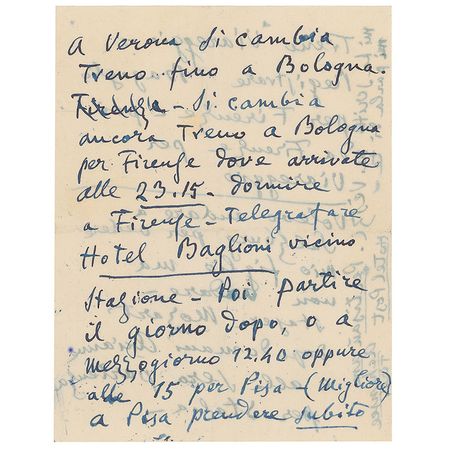 A Verona si cambia
Treno fino a Bologna.
Firenze - Si cambia
ancora Treno a Bologna
per Firenze dove arrivate
alle 23.15 - dormire
a Firenze - Telegrafare
Hotel Baglioni vicino
Stazione - Poi partire
il giorno dopo, o a
mezzogiorno 12.40 oppure
alle 15 per Pisa - (Migliore)
a Pisa prendere subito